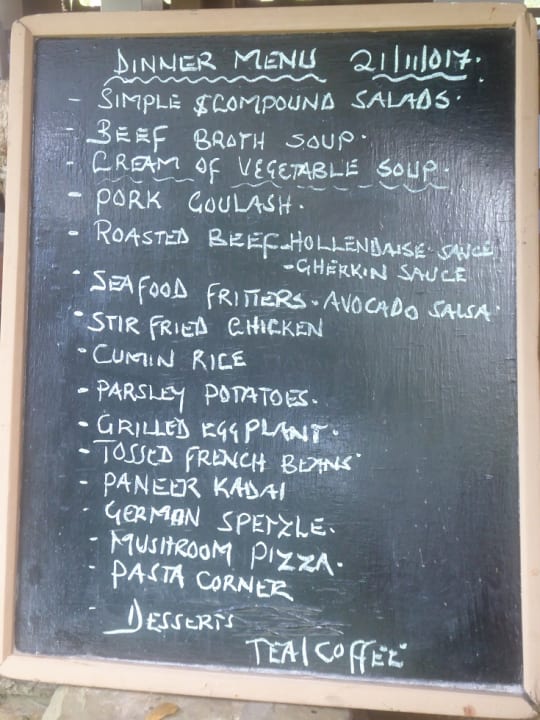 DINNER MENU 21/11/017.
- SIMPLE & COMPOUND SALADS.
- BEEF BROTH SOUP.
- CREAM OF VEGETABLE SOUP.
- PORK GOULASH.
- ROASTED BEEF-HOLLENDAISE SAUCE
-GHERKIN SAUCE
- SEAFOOD FRITTERS - AVOCADO SALSA
- STIR FRIED CHICKEN
- CUMIN RICE
- PARSLEY POTATOES.
- GRILLED EGGPLANT.
- TOSSED FRENCH BEANS
- PANEER KADAI
- GERMAN SPETZLE.
- MUSHROOM PIZZA.
- PASTA CORNER
- DESSERTS
TEA/COFFEE